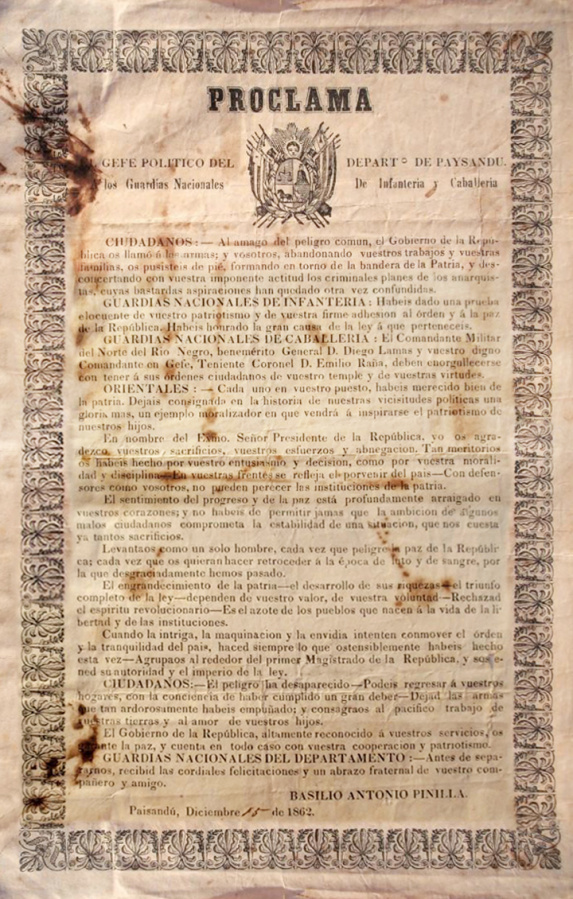 PROCLAMA
GEFE POLITICO DEL DEPART° DE PAYSANDU.
los Guardias Nacionales De Infanteria y Caballeria
CIUDADANOS:— Al amago del peligro comun, el Gobierno de la Repu-
blica os llamó á las armas; y vosotros, abandonando vuestros trabajos y vuestras
familias, os pusisteis de pié, formando en torno de la bandera de la Patria, y des-
concertando con vuestra imponente actitud los criminales planes de los anarquis-
tas, cuyas bastardas aspiraciones han quedado otra vez confundidas.
GUARDIAS NACIONALES DE INFANTERIA: Habeis dado una prueba
elocuente de vuestro patriotismo y de vuestra firme adhesion al órden y á la paz
de la República. Habeis honrado la gran causa de la ley á que perteneceis.
GUARDIAS NACIONALES DE CABALLERIA: El Comandante Militar
del Norte del Rio Negro, benemérito General D. Diego Lamas y vuestro digno
Comandante en Gefe, Teniente Coronel D. Emilio Raña, deben enorgullecerse
con tener á sus órdenes ciudadanos de vuestro temple y de vuestras virtudes.
ORIENTALES:— Cada uno en vuestro puesto, habeis merecido bien de
la patria. Dejais consignada en la historia de nuestras vicisitudes politicas una
gloria mas, un ejemplo moralizador en que vendrá á inspirarse el patriotismo de
nuestros hijos.
En nombre del Exmo. Señor Presidente de la República, yo os agra-
dezco vuestros sacrificios, vuestros esfuerzos y abnegacion. Tan meritorios
os habeis hecho por vuestro entusiasmo y decision, como por vuestra morali-
dad y disciplina—En vuestras frentes se refleja el porvenir del pais—Con defen-
sores como vosotros, no pueden perecer las instituciones de la patria.
El sentimiento del progreso y de la paz está profundamente arraigado en
vuestros corazones; y no habeis de permitir jamas que la ambicion de algunos
malos ciudadanos comprometa la estabilidad de una situacion, que nos cuesta
ya tantos sacrificios.
Levantaos como un solo hombre, cada vez que peligre la paz de la Repúbli-
ca; cada vez que os quieran hacer retroceder á la época de luto y de sangre, por
la que desgraciadamente hemos pasado.
El engrandecimiento de la patria—el desarrollo de sus riquezas—el triunfo
completo de la ley—dependen de vuestro valor, de vuestra voluntad—Rechazad
el espiritu revolucionario—Es el azote de los pueblos que nacen á la vida de la li-
bertad y de las instituciones.
Cuando la intriga, la maquinacion y la envidia intenten conmover el órden
y la tranquilidad del pais, haced siempre lo que ostensiblemente habeis hecho
esta vez—Agrupaos al rededor del primer Magistrado de la República, y soste-
ned su autoridad y el imperio de la ley.
CIUDADANOS:—El peligro ha desaparecido—Podeis regresar á vuestros
hogares, con la conciencia de haber cumplido un gran deber—Dejad las armas
que tan ardorosamente habeis empuñado; y consagraos al pacifico trabajo de
nuestras tierras y al amor de vuestros hijos.
El Gobierno de la República, altamente reconocido á vuestros servicios, os
garante la paz, y cuenta en todo caso con vuestra cooperacion y patriotismo.
GUARDIAS NACIONALES DEL DEPARTAMENTO:—Antes de sepa-
rarnos, recibid las cordiales felicitaciones y un abrazo fraternal de vuestro com-
pañero y amigo.
BASILIO ANTONIO PINILLA.
Paisandú, Diciembre 15 de 1862.